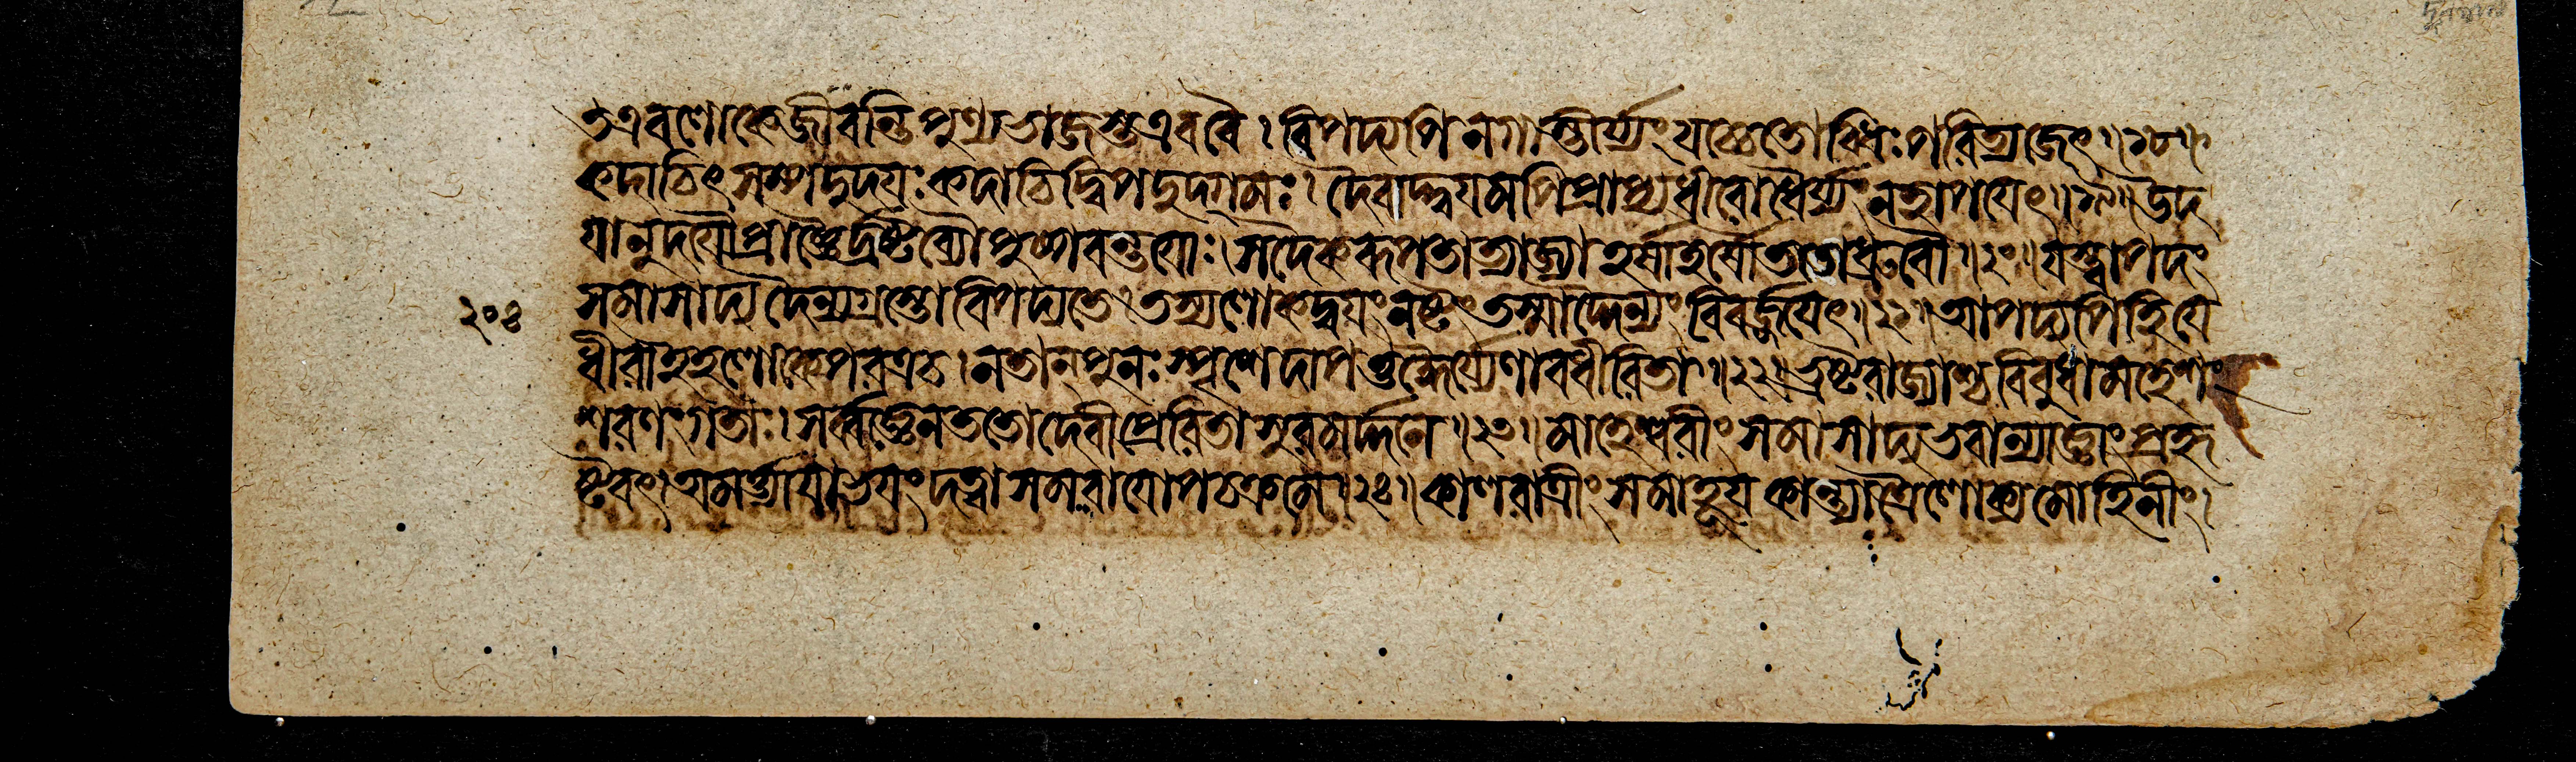 ত এব লোকে জীবন্তি পুণ্যভাজস্ত এব বৈ। বিপদ্যপি ন গাম্ভীর্য্যং যচ্চেতোব্ধিঃ পরিত্যজেৎ॥১৮॥
কদাচিৎ সম্পদুদয়ঃ কদাচিদ্বিপদুদ্গমঃ। দৈবাদ্দ্বয়মপি প্রাপ্য ধীরো ধৈর্য্যং ন হাপয়েৎ॥১৯॥ উদ
য়ানুদয়ৌ প্রাজ্ঞৈর্দ্রষ্টব্যৌ পুষ্পবন্তয়োঃ। সদৈকরূপতাত্যাজ্যা হর্ষাহর্ষৌ ততোধ্রুবৌ॥২০॥ যস্ত্বাপদং
২০৪ সমাসাদ্য দৈন্যগ্রস্তো বিপদ্যতে। তস্য লোকদ্বয়ং নষ্টং তস্মাদ্দৈন্যং বিবর্জ্জয়েৎ॥২১॥ আপদ্যপি হি যে
ধীরা ইহ লোকে পরত্র চ। ন তান্ পুনঃ স্পৃশেদাপত্তদ্ধৈর্য্যেণাবধীরিতা॥২২॥ ভ্রষ্টরাজ্যাশ্চ বিবুধা মহেশং
শরণং গতাঃ। সর্ব্বজ্ঞেন ততো দেবী প্রেরিতাসুরমর্দ্দনে॥২৩॥ মাহেশ্বরীং সমাসাদ্য ভবান্যাজ্ঞাং প্রহৃ
ষ্টবৎ। অমর্ত্ত্যায়াভয়ং দত্ত্বা সমরায়োপচক্রমে॥২৪॥ কালরাত্রীং সমাহূয় কান্ত্যা ত্রৈলোক্যমোহিনীং।